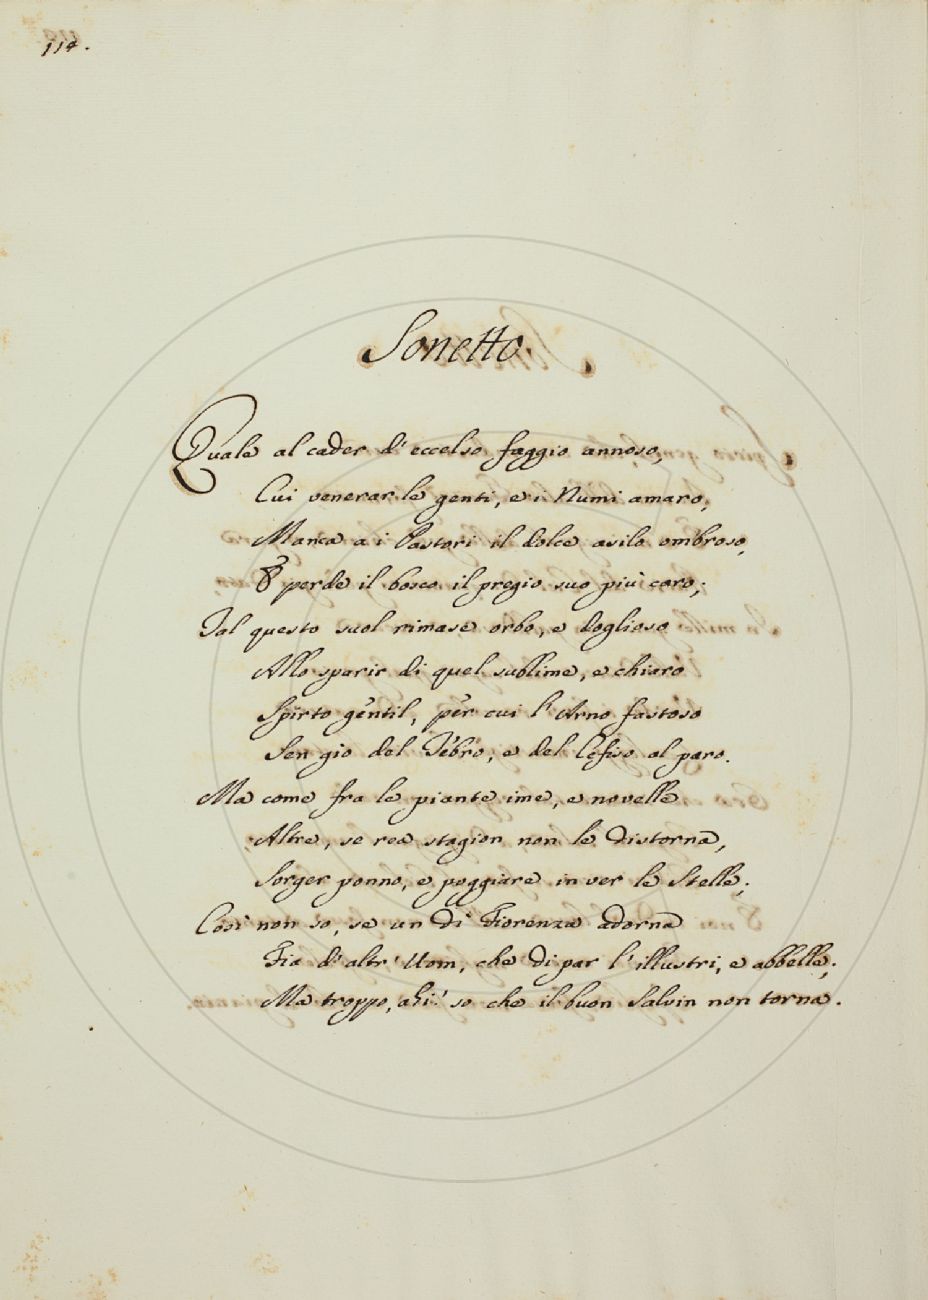 114.
Sonetto.
Quale al cader d'eccelso faggio annoso,
Cui venerar le genti, e i Numi amaro,
Manca a i Pastori il dolce asilo ombroso,
E perde il bosco il pregio suo più caro;
Tal questo suol rimase orbo, e doglioso
Allo sparir di quel sublime, e chiaro
Spirto gentil, per cui l'Arno fastoso
Sen gio del Tebro, e del Cefiso al paro.
Ma come fra le piante ime, e novelle
Altre, se rea stagion non le distorna,
Sorger ponno, e poggiare in ver le Stelle;
Così non so, se un dì Fiorenza adorna
Fia d'altr'Uom, che di par l'illustri, e abbelle;
Ma troppo, ahi! so che il buon Salvin non torna.